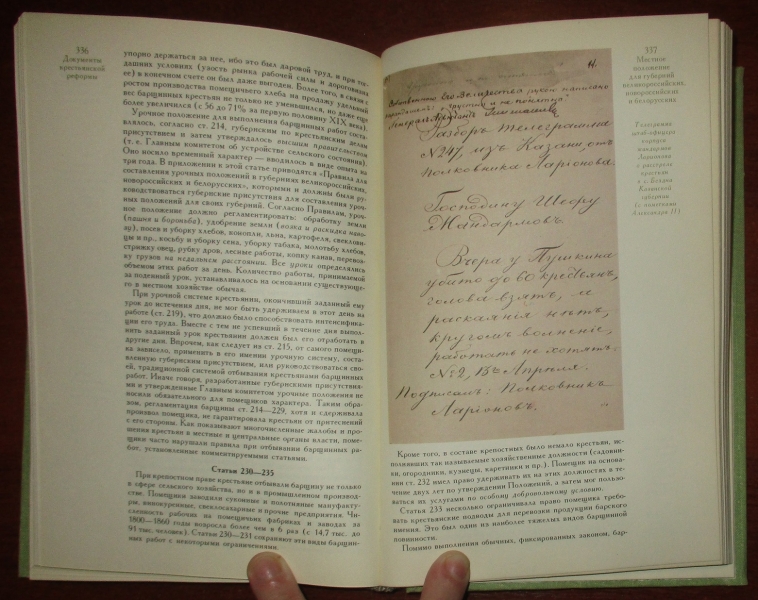 336
Документы
крестьянской
реформы
упорно держаться за нее, ибо это был даровой труд, и при тог-
дашних условиях (узость рынка рабочей силы и дороговизна
ее) в конечном счете он был даже выгоден. Более того, в связи с
ростом производства помещичьего хлеба на продажу удельный
вес барщинных крестьян не только не уменьшился, но даже еще
более увеличился (с 56 до 71% за первую половину XIX века).
Урочное положение для выполнения барщинных работ состав-
лялось, согласно ст. 214, губернским по крестьянским делам
присутствием и затем утверждалось высшим правительством
(т. е. Главным комитетом об устройстве сельского состояния).
Оно носило временный характер — вводилось в виде опыта на
три года. В приложении к этой статье приводятся «Правила для
составления урочных положений в губерниях великороссийских,
новороссийских и белорусских», которыми и должны были ру-
ководствоваться губернские присутствия для составления уроч-
ных положений для своих губерний. Согласно Правилам, уроч-
ное положение должно регламентировать: обработку земли
(пашня и бороньба), удобрение земли (возка и раскидка наво-
за), посев и уборку хлебов, конопли, льна, картофеля, свеклови-
цы и пр., косьбу и уборку сена, уборку табака, молотьбу хлебов,
стрижку овец, рубку дров, лесные работы, копку канав, перевоз-
ку грузов на недальнем расстоянии. Все уроки определялись
объемом этих работ за день. Количество работы, принимаемой
за поденный урок, устанавливалось на основании существующе-
го в местном хозяйстве обычая.
При урочной системе крестьянин, окончивший заданный ему
урок до истечения дня, не мог быть удерживаем в этот день на
работе (ст. 219), что должно было способствовать интенсифика-
ции его труда. Вместе с тем не успевший в течение дня выпол-
нить заданный урок крестьянин должен был его отработать в
другие дни. Впрочем, как следует из ст. 215, от самого помещи-
ка зависело, применить в его имении урочную систему, состав-
ленную губернским присутствием, или руководствоваться сво-
ей, традиционной системой отбывания крестьянами барщинных
работ. Иначе говоря, разработанные губернскими присутствия-
ми и утвержденные Главным комитетом урочные положения не
носили обязательного для помещиков характера. Таким обра-
зом, регламентация барщины ст. 214—229, хотя и сдерживала
произвол помещика, не гарантировала крестьян от притеснений
с его стороны. Как показывают многочисленные жалобы и про-
шения крестьян в местные и центральные органы власти, поме-
щики часто нарушали правила при отбывании барщинных ра-
бот, установленные комментируемыми статьями.
Статьи 230—235
При крепостном праве крестьяне отбывали барщину не только
в сфере сельского хозяйства, но и в промышленном производ-
стве. Помещики заводили суконные и полотняные мануфакту-
ры, винокуренные, свеклосахарные и прочие предприятия. Чи-
сленность рабочих на помещичьих фабриках и заводах за
1800—1860 годы возросла более чем в 6 раз (с 14,7 тыс. до
91 тыс. человек). Статьи 230—231 сохраняют эти виды барщин-
ных работ с некоторыми ограничениями.
337
Местное
положение
для губерний
великороссийских,
новороссийских
и белорусских
Телеграмма
штаб-офицера
корпуса
жандармов
Ларионова
о расстреле
крестьян
в с. Бездна
Казанской
губернии
(с пометками
Александра II)
Собственною Его Величества рукою написано
карандашом: „грустно и не понятно."
Разборъ телеграммы
№ 247, изъ Казани, отъ
полковника Ларіонова.
Господину Шефу
Жандармовъ.
Вчера у Пушкина
убито до 60 крестьянъ,
голова взятъ, и
раскаянія нѣтъ,
кругомъ волненіе,
работать не хотятъ.
№ 2, 13го Апрѣля.
Подписалъ: Полковникъ
Ларіоновъ.
Кроме того, в составе крепостных было немало крестьян, ис-
полнявших так называемые хозяйственные должности (садовни-
ки, огородники, кузнецы, каретники и пр.). Помещик на основа-
нии ст. 232 имел право удерживать их на этих должностях в те-
чение двух лет по утверждении Положений, а затем мог пользо-
ваться их услугами по особому добровольному условию.
Статья 233 несколько ограничивала право помещика требо-
вать крестьянские подводы для перевозки продукции барского
имения. Это был один из наиболее тяжелых видов барщинной
повинности.
Помимо выполнения обычных, фиксированных законом, бар-